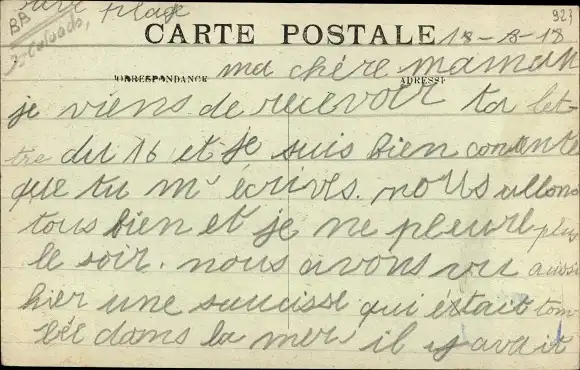 BB
Calvados,
plage
923
CARTE POSTALE 18-8-18
CORRESPONDANCE ma chère maman ADRESSE
je viens de recevoir ta let-
tre du 16 et je suis bien contente
que tu m'écrives. nous allons
tous bien et je ne pleure plus
le soir. nous avons vu aussi
hier une saucisse qui était tom
bée dans la mer il y avait